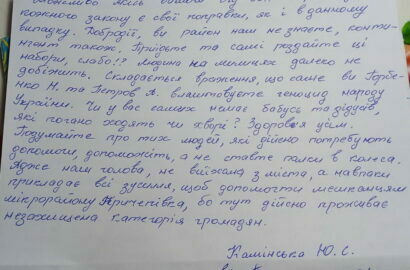 кожного закону є свої поправки, як і в даному
випадку. Добродії, ви район наш не знаєте, конти-
нгент також. Прийдете та самі роздайте ці
набори, слабо!? Людина на милицях далеко не
добіжить. Складається враження, що саме ви Горбе-
нко Н. та Петров А. влаштовуєте геноцид народу
України. Чи у вас самих немає бабусь та дідусів,
які погано ходять чи хворі? Здоров'я усім.
Подумайте про тих людей, які дійсно потребують
допомоги, допоможіть, а не ставте палки в колеса.
Адже наш голова, не виїжала з міста, а навпаки
прикладає всі зусилля, щоб допомогти мешканцям
мікрорайону Причепівка, бо тут дійсно проживає
незахищена категорія громадян.
Камінська Ю. С.